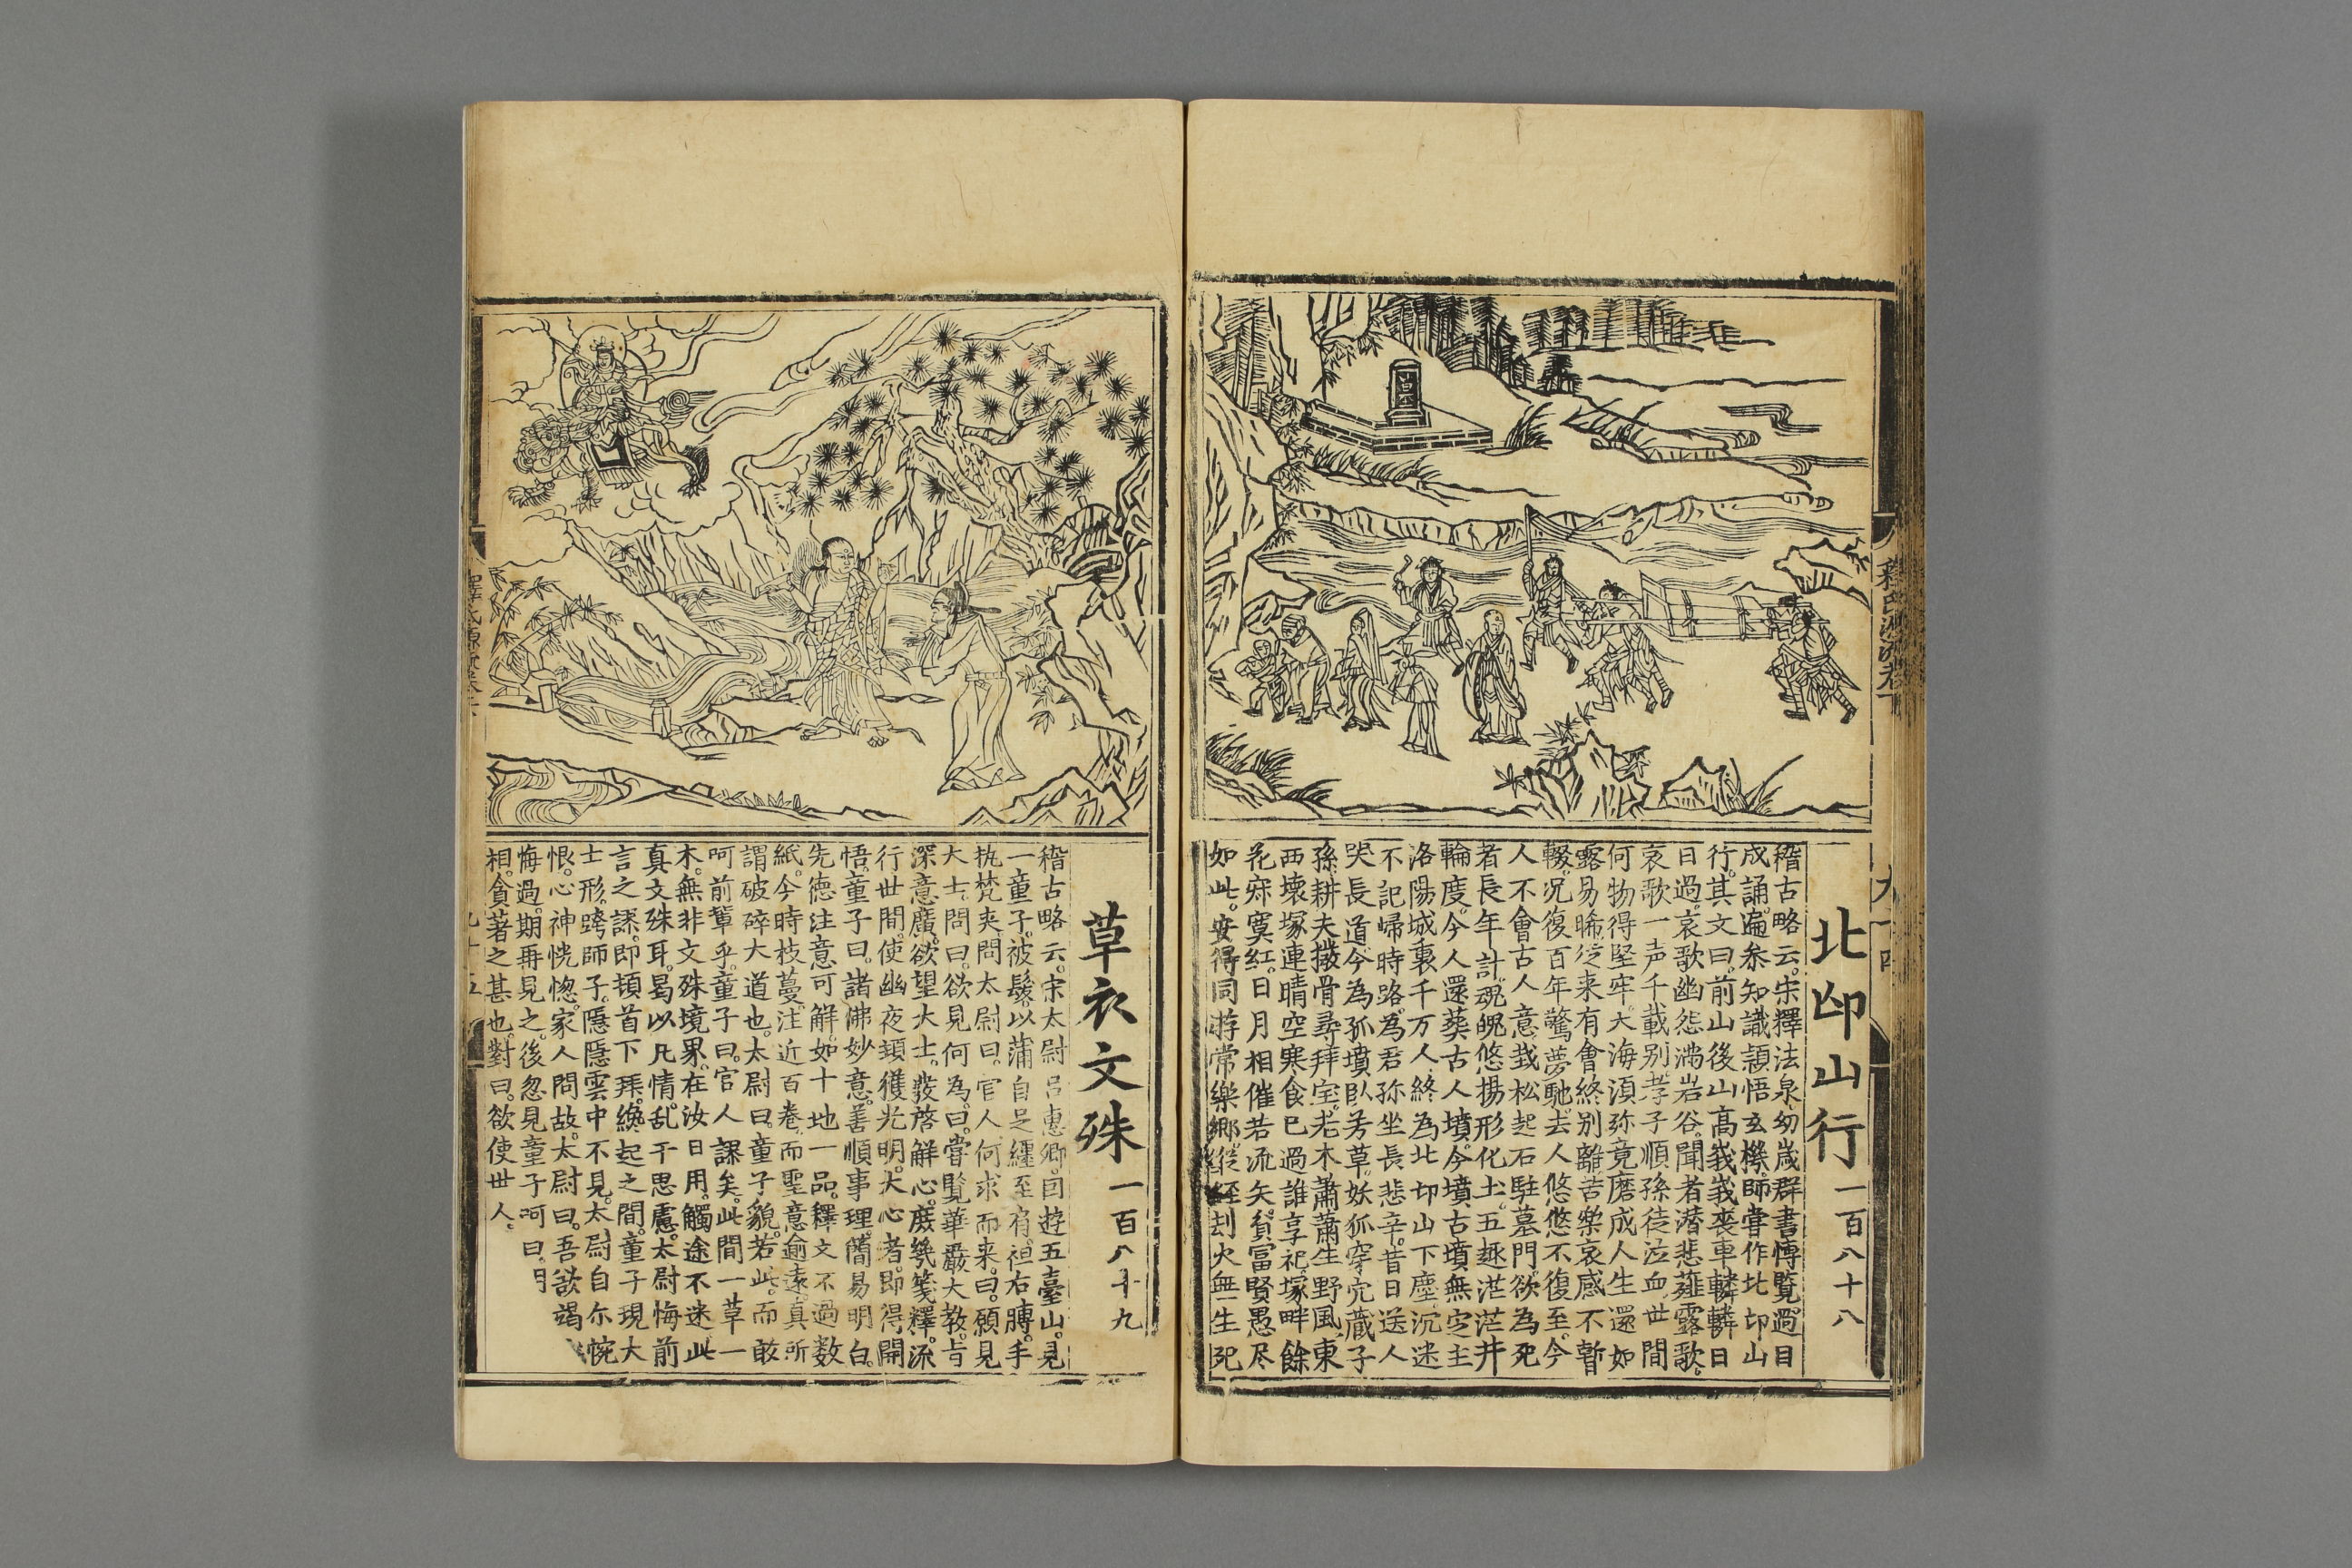 北邙山行 一百八十八
稽古略云。宋釋法泉。幼歲群書愽覧。過目
成誦。遍叅知識。頴悟玄機。師甞作北邙山
行。其文曰。前山後山高峩峩。丧車轔轔日
日過。哀歌幽怨满岩谷。聞者潜悲薤露歌。
哀歌一声千載别。孝子順孫徒泣血。世間
何物得堅牢。大海湏弥竟磨成。人生還如
露易晞。従来有會終别離。苦樂哀感不暫
輟。况復百年驚夢馳。去人悠悠不復至。今
人不會古人意。栽松起石駐墓門。欲為死
者長年計。魂魄悠揚形化土。五趣茫茫井
輪度。今人還葬古人墳。今墳古墳無㝎主
洛陽城裏千万人。終為北邙山下塵。沉迷
不記帰時路。為君弥坐長悲辛。昔日送人
哭長道。今為孤墳臥芳草。妖狐穿穴蔵子
孫。耕夫撥骨尋拜宝。老木蕭蕭生野風。東
西壊塚連晴空。寒食已過誰享祀。塚畔餘
花寂寞紅。日月相催若流矢。貧冨賢愚尽
如此。安得同游常樂鄉。従経刦火無生死
釋氏源流卷下
九十四
草衣文殊 一百八十九
稽古略云。宋太尉吕惠卿。囙遊五臺山。見
一童子。被鬆以蒲自足纒至肩。袒右膊。手
执梵夹。問太尉曰。官人何求而来。曰。願見
大士。問曰。欲見何為。曰。甞覧華嚴大教。㫖
深意廣。欲望大士。發啓解心。庻㡬笺釋。流
行世間。使幽夜頓獲光明。大心者。即得開
悟。童子曰。諸佛妙意。善順事理。簡易明白。
先徳注意可解。如十地一品。釋文不過数
紙。今時枝蔓。注近百卷。而聖意逾遠。真所
謂破碎大道也。太尉曰。童子貌若此。而敢
呵前輩乎。童子曰。官人謬矣。此間一草一
木。無非文殊境界。在汝日用。觸途不迷。此
真文殊耳。曷以凡情乱干思慮。太尉悔前
言之謬。即頓首下拜。纔起之間。童子現大
士形。跨師子。隱隱雲中不見。太尉自尓惋
恨。心神恍惚。家人問故。太尉曰。吾欲竭
悔過。期再見之。後忽見童子呵曰。
相。貪著之甚也。對曰。欲使世人。
釋氏源流卷下
九十五